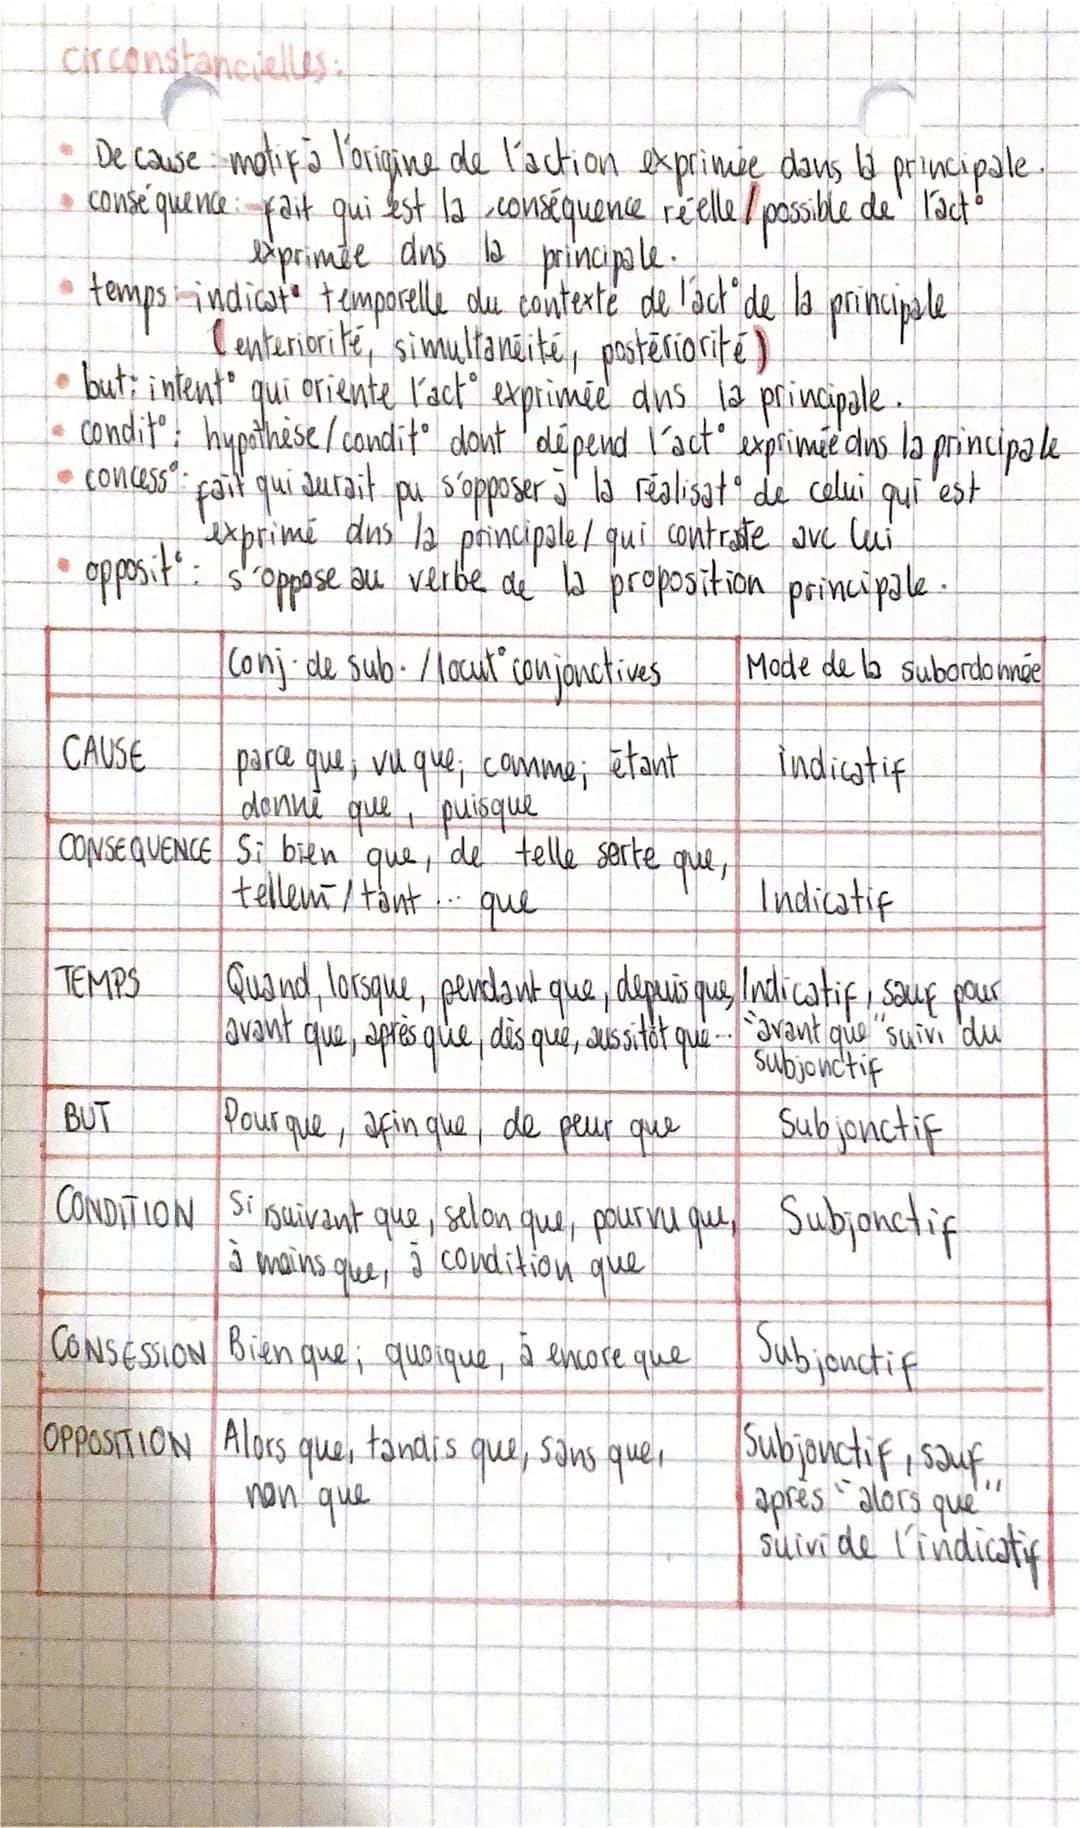 circonstancielles:
• De cause : motif à l'origine de l'action exprimée dans la principale.
• conséquence : fait qui est la conséquence réelle / possible de l'act°
exprimée dns la principale.
• temps : indicat° temporelle du contexte de l'act° de la principale
(enteriorité, simultanéité, postériorité)
• but : intent° qui oriente l'act° exprimée dns la principale.
• condit° : hypothèse / condit° dont dépend l'act° exprimée dns la principale
• concess° : fait qui aurait pu s'opposer à la réalisat° de celui qui est
exprimé dns la principale / qui contraste avc lui
• opposit° : s'oppose au verbe de la proposition principale.
Conj. de sub. / locut° conjonctives Mode de la subordonnée
CAUSE parce que; vu que; comme; étant indicatif
donné que, puisque
CONSEQUENCE Si bien que, de telle sorte que,
tellem̄ / tant ... que Indicatif
TEMPS Quand, lorsque, pendant que, depuis que, Indicatif, sauf pour
avant que, après que, dès que, aussitôt que... "avant que" suivi du
subjonctif
BUT Pour que, afin que, de peur que Subjonctif
CONDITION Si suivant que, selon que, pourvu que, Subjonctif
à moins que, à condition que
CONSESSION Bien que; quoique, à encore que Subjonctif
OPPOSITION Alors que, tandis que, sans que, Subjonctif, sauf
non que après "alors que"
suivi de l'indicatif